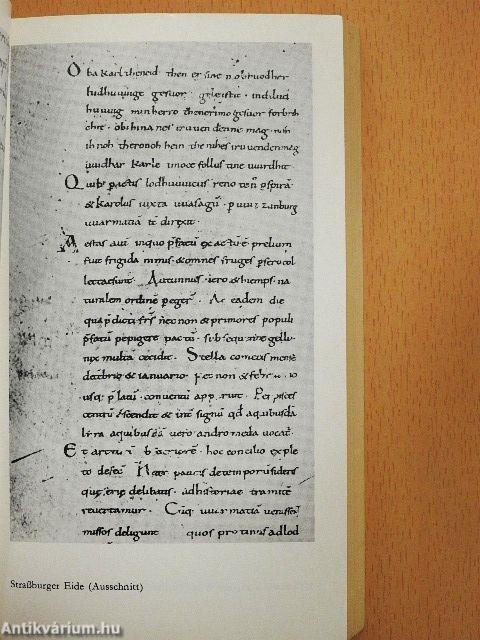 Oba karl theneid then er sine n obruodher
ludhuuuige gesuor · geleistit · indilud
huuuig minherro thenerimo gesuor forbrih
chit · obihina nes iruuen denne mag · noh
ih noh theronoh hein the nihes iruuendenmag
uuidhar karle imoce follus tine uuirdhit ·
Quib; pactis lodhuuuicus reno ten' p spirã
& karolus iuxta uuasagũ · p uuiz zunburg
uuarmatiã te direxit ·
Aestas aut inquo pfatũ exactũ ẽ prelium
fuit frigida nimis & omnes fruges p sero col
lectaesunt · Autumnus · uero & hiemps · na
turalem ordinẽ peger̃ · Ac eadem die
qua pdicti frs nec non & primores populi
pfatũ pepigere pactũ · subsequente gellu
nix multa cecidit · Stella comeces mense
decẽbrio & ianuario
usq; p latũ · conuentũ app ruit · Per pisces
centrũ
lira aquibus vero andromeda vocat̃ ·
hoc concilio exple
to
quae erĩs delibatis · adhistoriae tramitẽ
reuertamur · Cũq; uuarmatiã venissent
missos deligunt quos protinus adlod
Straßburger Eide (Ausschnitt)
Antikvárium.hu